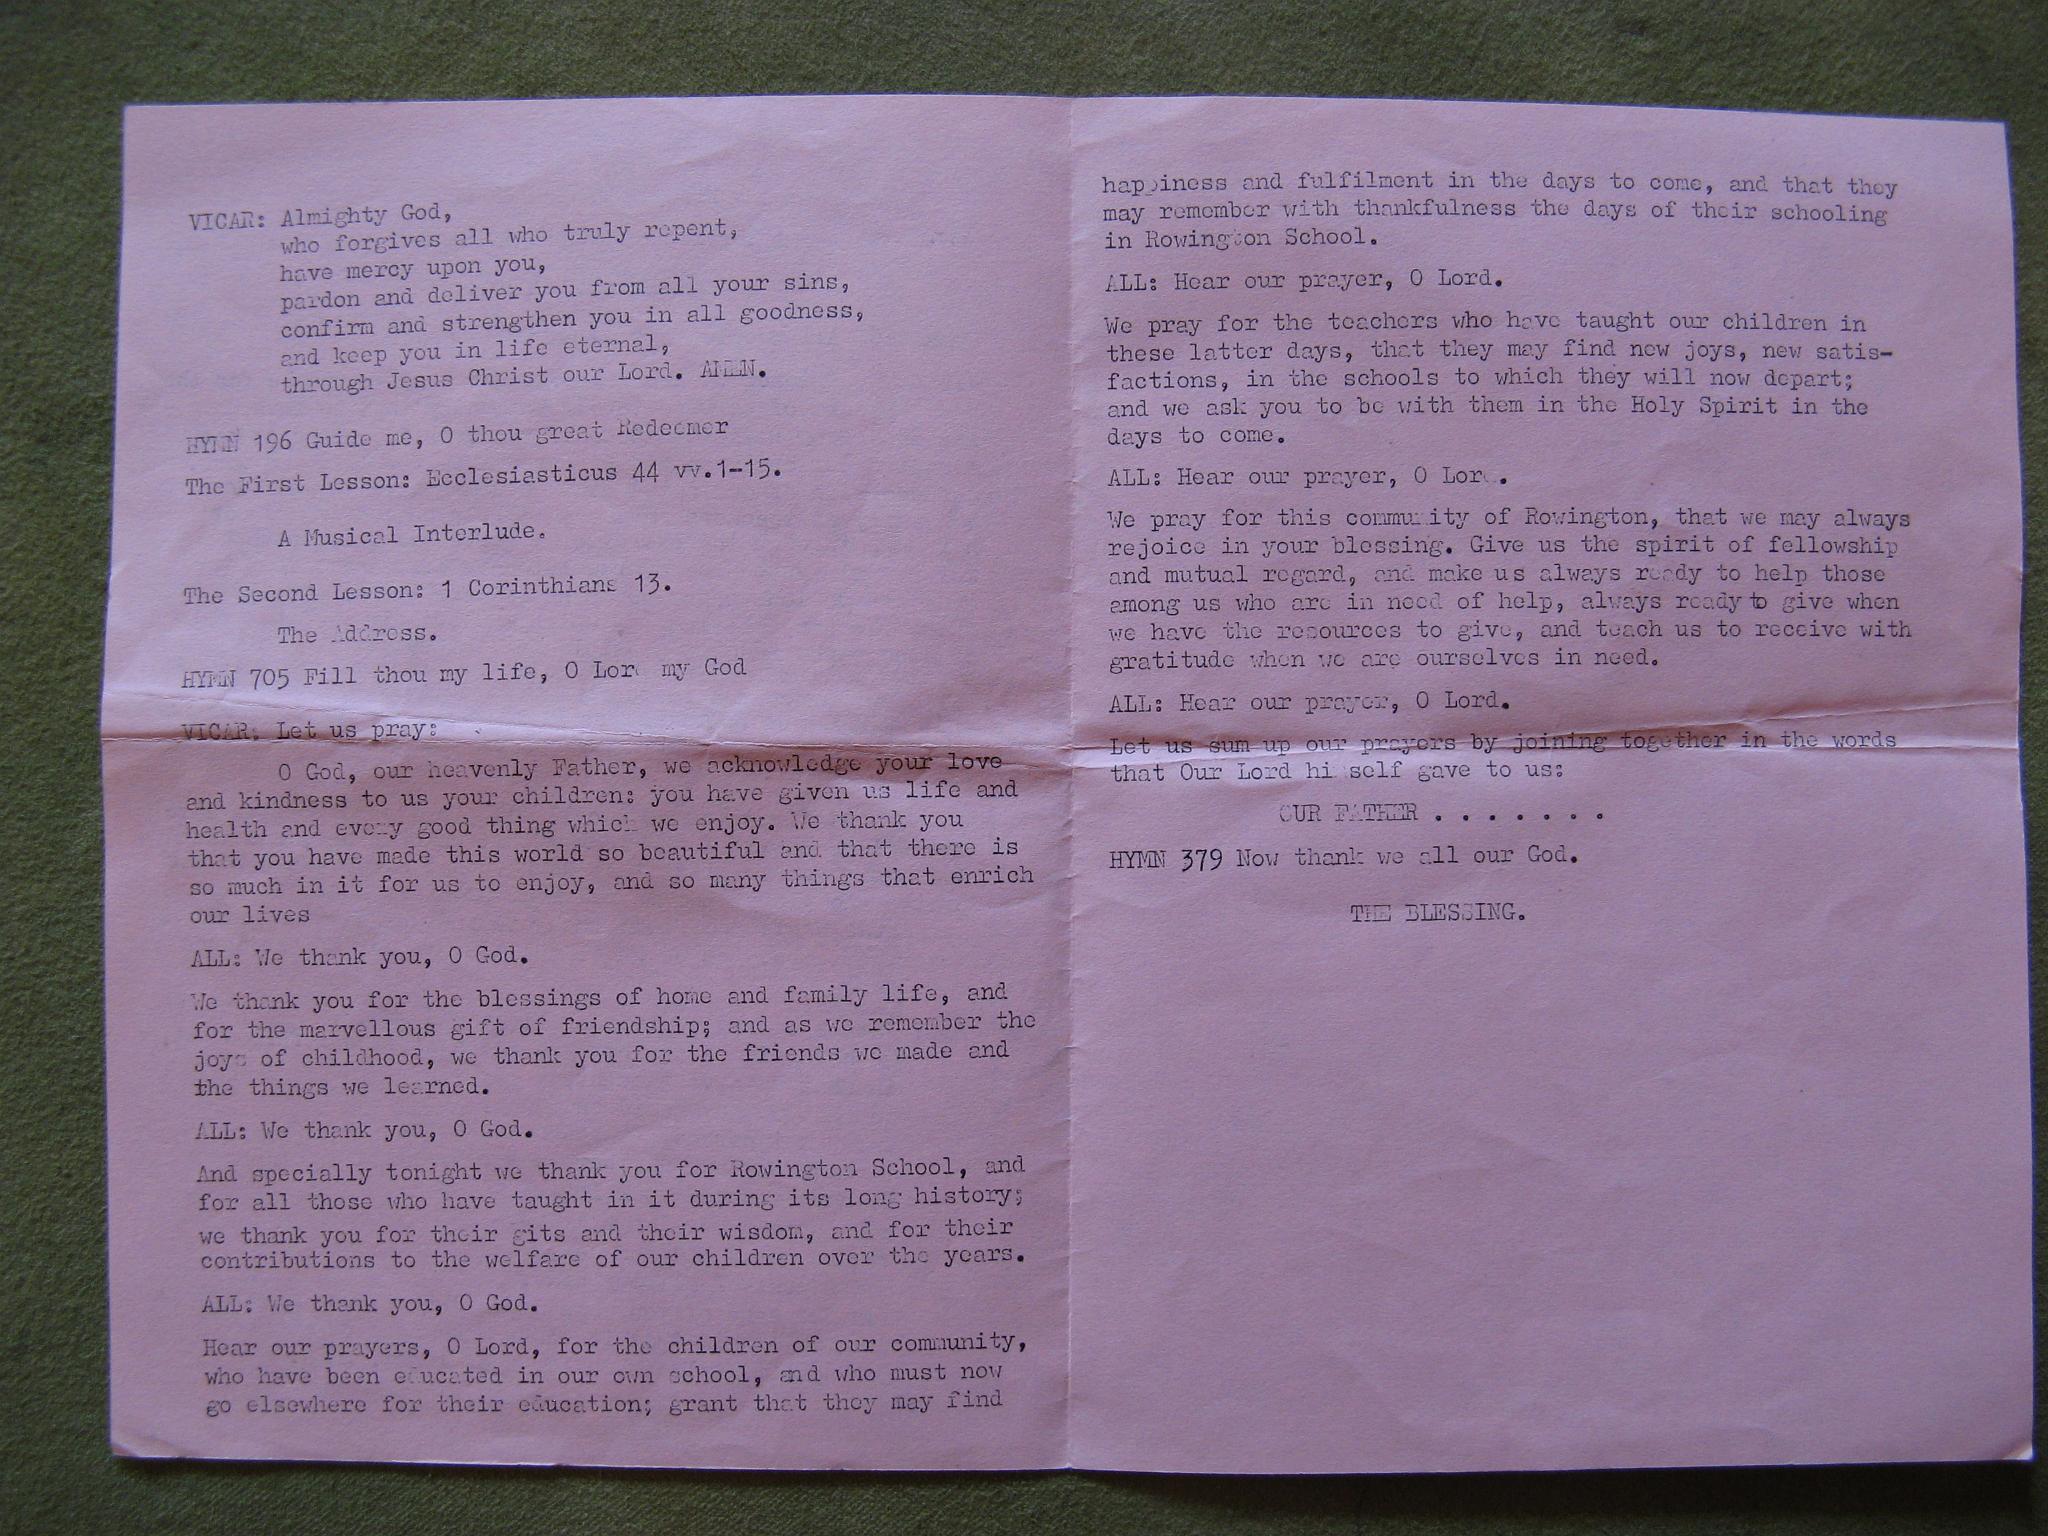 VICAR: Almighty God,
who forgives all who truly repent,
have mercy upon you,
pardon and deliver you from all your sins,
confirm and strengthen you in all goodness,
and keep you in life eternal,
through Jesus Christ our Lord. AMEN.
HYMN 196 Guide me, O thou great Redeemer
The First Lesson: Ecclesiasticus 44 vv.1-15.
A Musical Interlude.
The Second Lesson: 1 Corinthians 13.
The Address.
HYMN 705 Fill thou my life, O Lord my God
VICAR: Let us pray:
O God, our heavenly Father, we acknowledge your love
and kindness to us your children: you have given us life and
health and every good thing which we enjoy. We thank you
that you have made this world so beautiful and that there is
so much in it for us to enjoy, and so many things that enrich
our lives
ALL: We thank you, O God.
We thank you for the blessings of home and family life, and
for the marvellous gift of friendship; and as we remember the
joys of childhood, we thank you for the friends we made and
the things we learned.
ALL: We thank you, O God.
And specially tonight we thank you for Rowington School, and
for all those who have taught in it during its long history;
we thank you for their gits and their wisdom, and for their
contributions to the welfare of our children over the years.
ALL: We thank you, O God.
Hear our prayers, O Lord, for the children of our community,
who have been educated in our own school, and who must now
go elsewhere for their education; grant that they may find
happiness and fulfilment in the days to come, and that they
may remember with thankfulness the days of their schooling
in Rowington School.
ALL: Hear our prayer, O Lord.
We pray for the teachers who have taught our children in
these latter days, that they may find new joys, new satis-
factions, in the schools to which they will now depart;
and we ask you to be with them in the Holy Spirit in the
days to come.
ALL: Hear our prayer, O Lord.
We pray for this community of Rowington, that we may always
rejoice in your blessing. Give us the spirit of fellowship
and mutual regard, and make us always ready to help those
among us who are in need of help, always ready to give when
we have the resources to give, and teach us to receive with
gratitude when we are ourselves in need.
ALL: Hear our prayer, O Lord.
Let us sum up our prayers by joining together in the words
that Our Lord himself gave to us:
OUR FATHER . . . . . . .
HYMN 379 Now thank we all our God.
THE BLESSING.